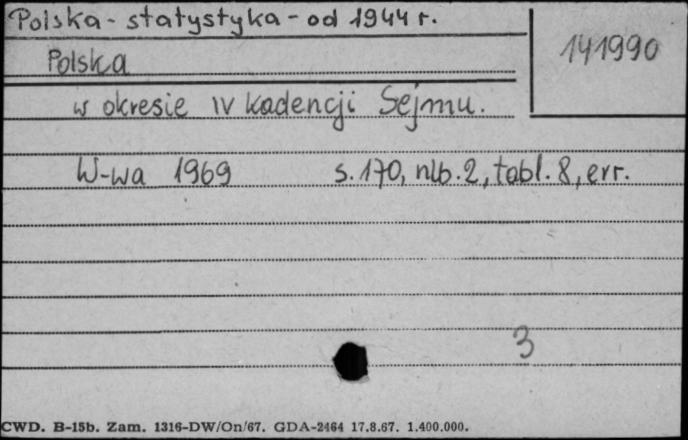 Polska - statystyka - od 1944 r.
141990
Polska
w okresie IV kadencji Sejmu.
W-wa 1969 s. 170, nlb. 2, tabl. 8, err.
3
CWD. B-15b. Zam. 1316-DW/On/67. GDA-2464 17.8.67. 1.400.000.